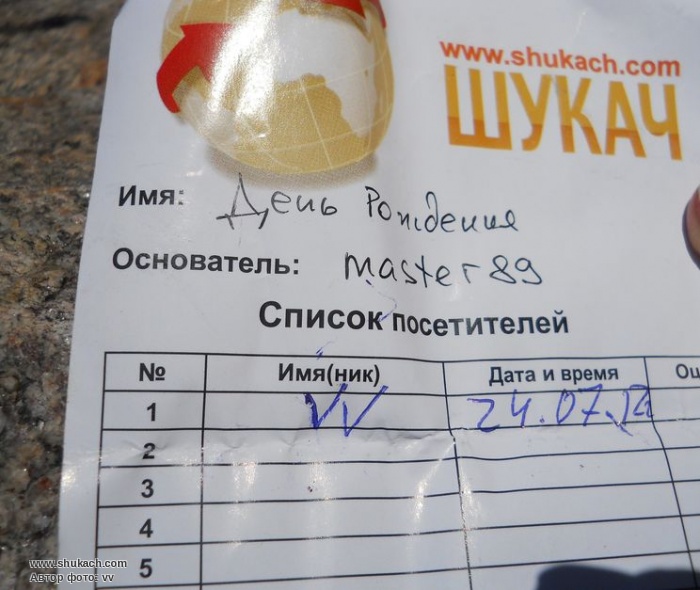 www.shukach.com
ШУКАЧ
Имя: День Рождения
Основатель: master89
Список посетителей
№ Имя(ник) Дата и время
1 VV 24.07.12
2
3
4
5
www.shukach.com
Автор фото: vv